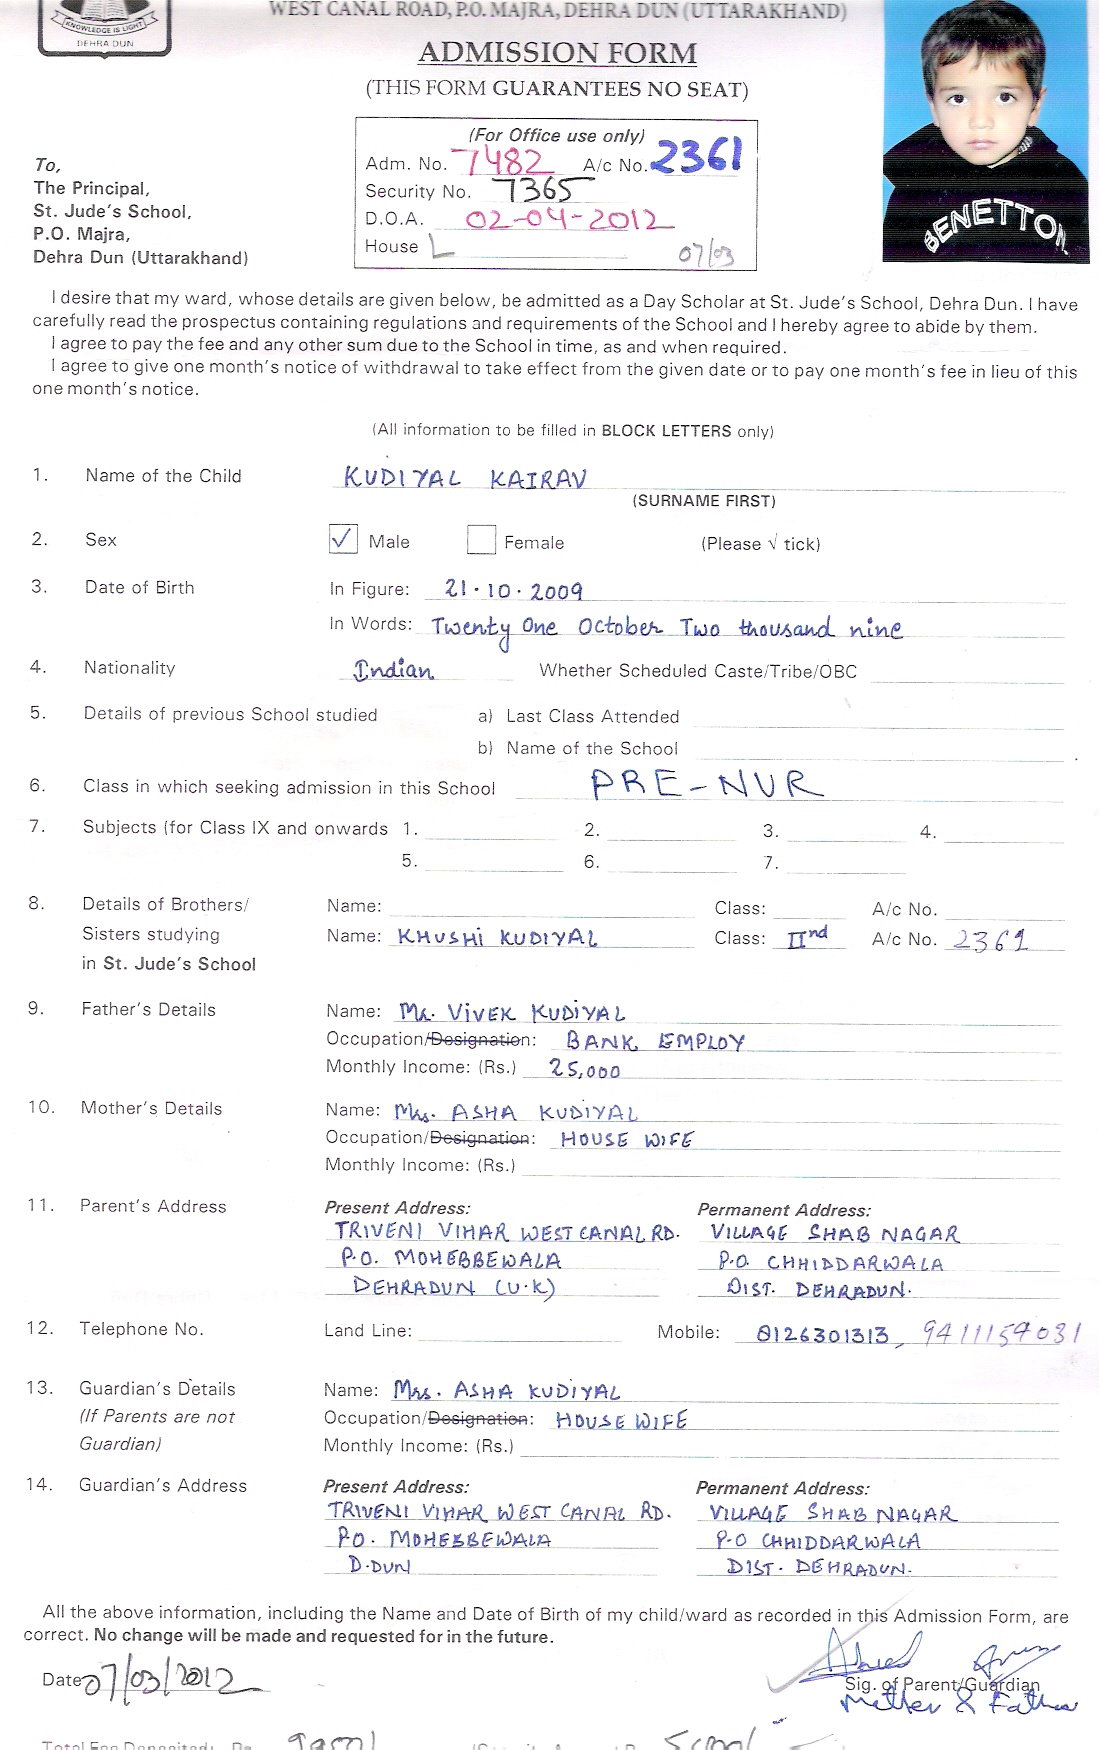 KNOWLEDGE IS LIGHT
DEHRA DUN
WEST CANAL ROAD, P.O. MAJRA, DEHRA DUN (UTTARAKHAND)
ADMISSION FORM
(THIS FORM GUARANTEES NO SEAT)
(For Office use only)
Adm. No. 7482 A/c No. 2361
Security No. 7365
D.O.A. 02-04-2012
House L 07/03
BENETTON
To,
The Principal,
St. Jude's School,
P.O. Majra,
Dehra Dun (Uttarakhand)
I desire that my ward, whose details are given below, be admitted as a Day Scholar at St. Jude's School, Dehra Dun. I have
carefully read the prospectus containing regulations and requirements of the School and I hereby agree to abide by them.
I agree to pay the fee and any other sum due to the School in time, as and when required.
I agree to give one month's notice of withdrawal to take effect from the given date or to pay one month's fee in lieu of this
one month's notice.
(All information to be filled in BLOCK LETTERS only)
1. Name of the Child KUDIYAL KAIRAV
(SURNAME FIRST)
2. Sex ✓ Male Female (Please √ tick)
3. Date of Birth In Figure: 21·10·2009
In Words: Twenty One October Two thousand nine
4. Nationality Indian Whether Scheduled Caste/Tribe/OBC
5. Details of previous School studied a) Last Class Attended
b) Name of the School
6. Class in which seeking admission in this School PRE-NUR
7. Subjects (for Class IX and onwards 1. 2. 3. 4.
5. 6. 7.
8. Details of Brothers/ Name: Class: A/c No.
Sisters studying Name: KHUSHI KUDIYAL Class: IInd A/c No. 2361
in St. Jude's School
9. Father's Details Name: Mr. VIVEK KUDIYAL
Occupation/Designation: BANK EMPLOY
Monthly Income: (Rs.) 25,000
10. Mother's Details Name: Mrs. ASHA KUDIYAL
Occupation/Designation: HOUSE WIFE
Monthly Income: (Rs.)
11. Parent's Address Present Address: Permanent Address:
TRIVENI VIHAR WEST CANAL RD. VILLAGE SHAB NAGAR
P.O. MOHEBBEWALA P.O. CHHIDDARWALA
DEHRADUN (U.K) DIST. DEHRADUN.
12. Telephone No. Land Line: Mobile: 8126301313, 9411154031
13. Guardian's Details Name: Mrs. ASHA KUDIYAL
(If Parents are not Occupation/Designation: HOUSE WIFE
Guardian) Monthly Income: (Rs.)
14. Guardian's Address Present Address: Permanent Address:
TRIVENI VIHAR WEST CANAL RD. VILLAGE SHAB NAGAR
P.O. MOHEBBEWALA P.O CHHIDDARWALA
D.DUN DIST. DEHRADUN.
All the above information, including the Name and Date of Birth of my child/ward as recorded in this Admission Form, are
correct. No change will be made and requested for in the future.
Date 07/03/2012 Sig. of Parent/Guardian
Mother & Father